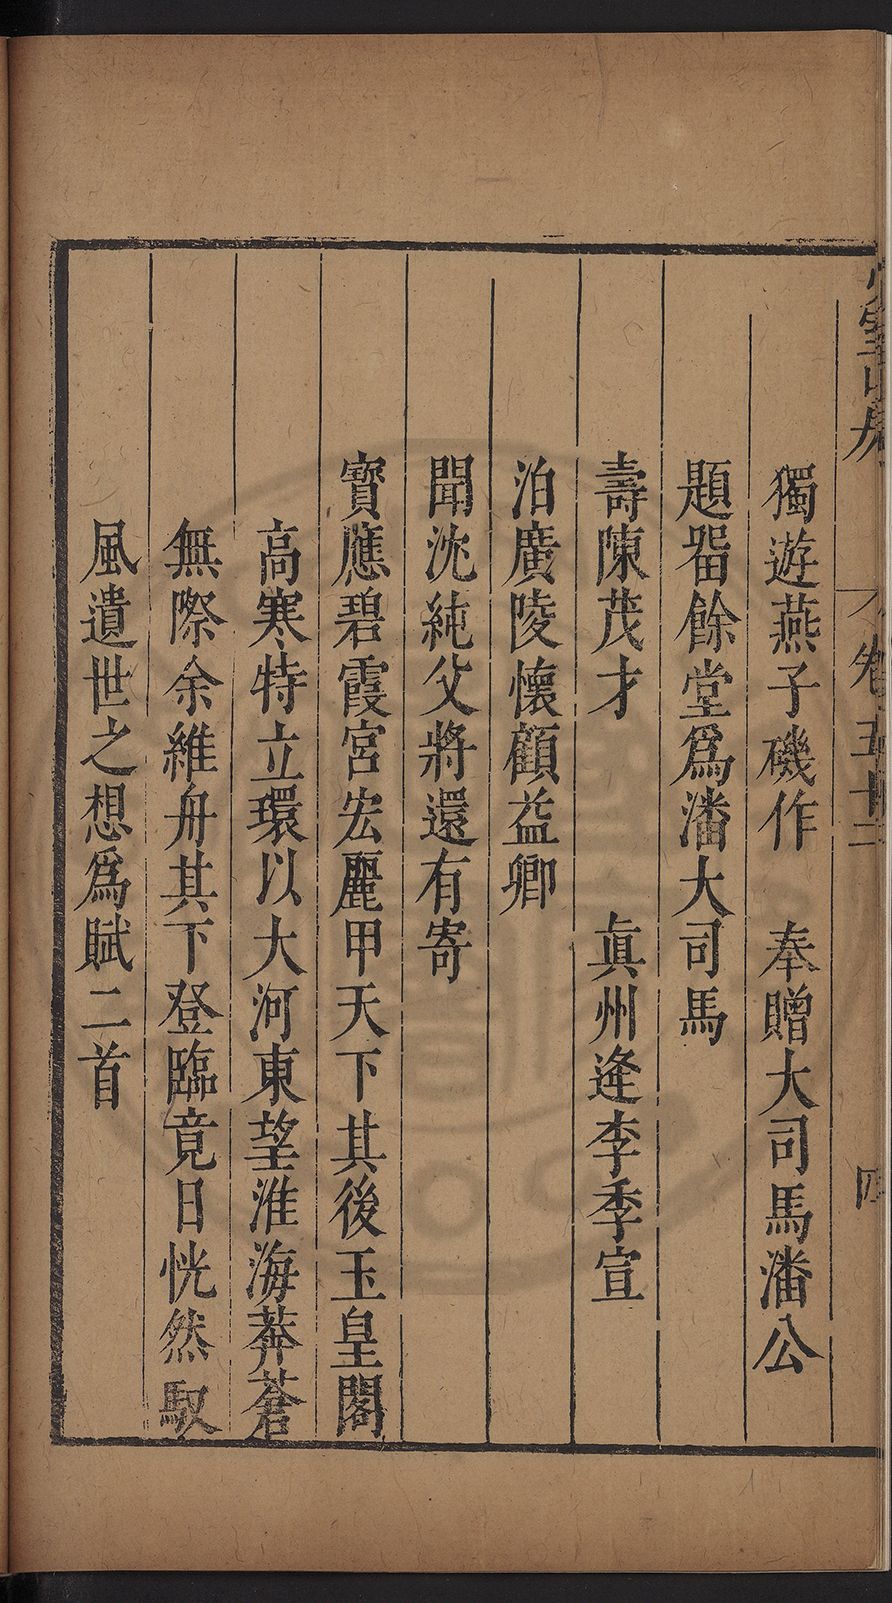 卷五十二 四
獨遊燕子磯作 奉贈大司馬潘公
題畱餘堂爲潘大司馬
壽陳茂才 眞州逢李季宣
泊廣陵懷顧益卿
聞沈純父將還有寄
寶應碧霞宮宏麗甲天下其後玉皇閣
高寒特立環以大河東望淮海莽蒼
無際余維舟其下登臨竟日恍然馭
風遺世之想爲賦二首